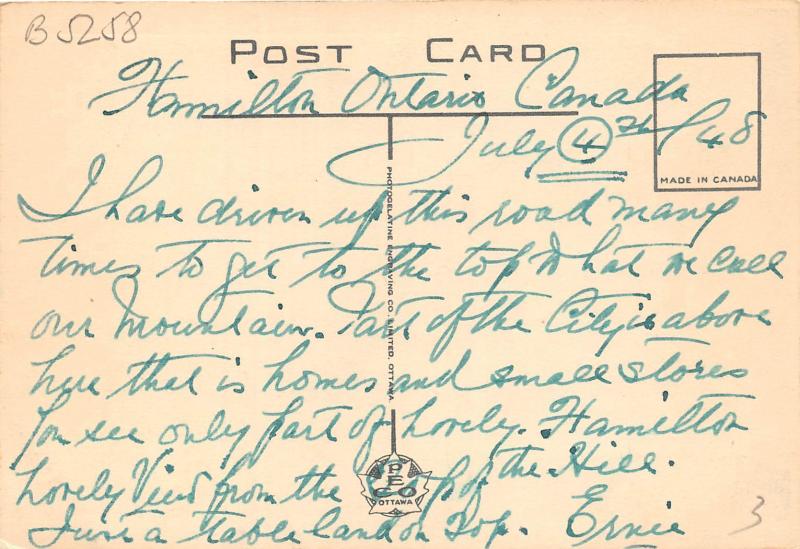 B5258
POST CARD
Hamilton Ontario Canada
July 4th/48
MADE IN CANADA
I have driven up this road many
times to get to the top what we call
our Mountain. Part of the City is above
here that is homes and small stores
you see only part of Lovely Hamilton
Lovely View from the top of the Hill.
Just a table land on Top. Ernie
PHOTOGELATINE ENGRAVING CO. LIMITED, OTTAWA
PECO
OTTAWA
3